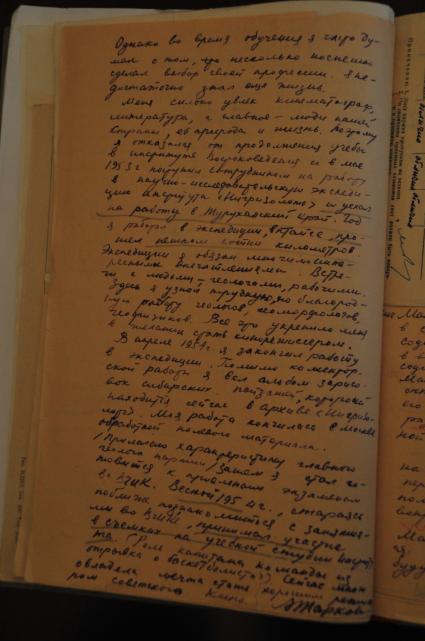 Однако во время обучения я часто ду-
мал о том, что несколько поспешно
сделал выбор своей профессии. Я не-
достаточно знал еще жизнь.
Меня сильно увлек кинематограф,
литература, а главное – люди нашей
страны, её природа и жизнь. Поэтому
я отказался от продолжения учебы
в институте Востоковедения и в мае
1953 г поступил сотрудником на работу
в научно-исследовательскую экспеди-
цию института «Нигризолото» и уехал
на работу в Туруханский край. Год
я работал в экспедиции, в тайге, про-
шел пешком сотни километров.
Экспедиции я обязан многими инте-
ресными впечатлениями. Встре-
чи с людьми – геологами, рабочими.
Здесь я узнал трудную, но благород-
ную работу геологов, геоморфологов,
геофизиков. Все это укрепило меня
в желании стать кинорежиссером.
В апреле 1954 г. я закончил работу
в экспедиции. Помимо коллектор-
ской работы я вел альбом зарисо-
вок сибирских пейзажей, который
находится сейчас в архиве «Нигризо-
лото». Моя работа кончилась в Москве
обработкой полевого материала.
/Прилагаю характеристику главного
геолога партии/ Затем я стал го-
товиться к приемным экзаменам
во ВГИК. Весной 1954 г., стараясь
поближе познакомиться с заняти-
ями во ВГИКе, принимал участие
в съемках на учебной студии институ-
та (Роль капитана команды из
отрывка о баскетболистах) Сейчас мной
овладела мечта стать хорошим режиссе-
ром советского кино. А Тарков